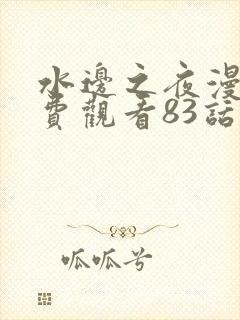 水邊之夜漫
費觀看83話
呱呱兮